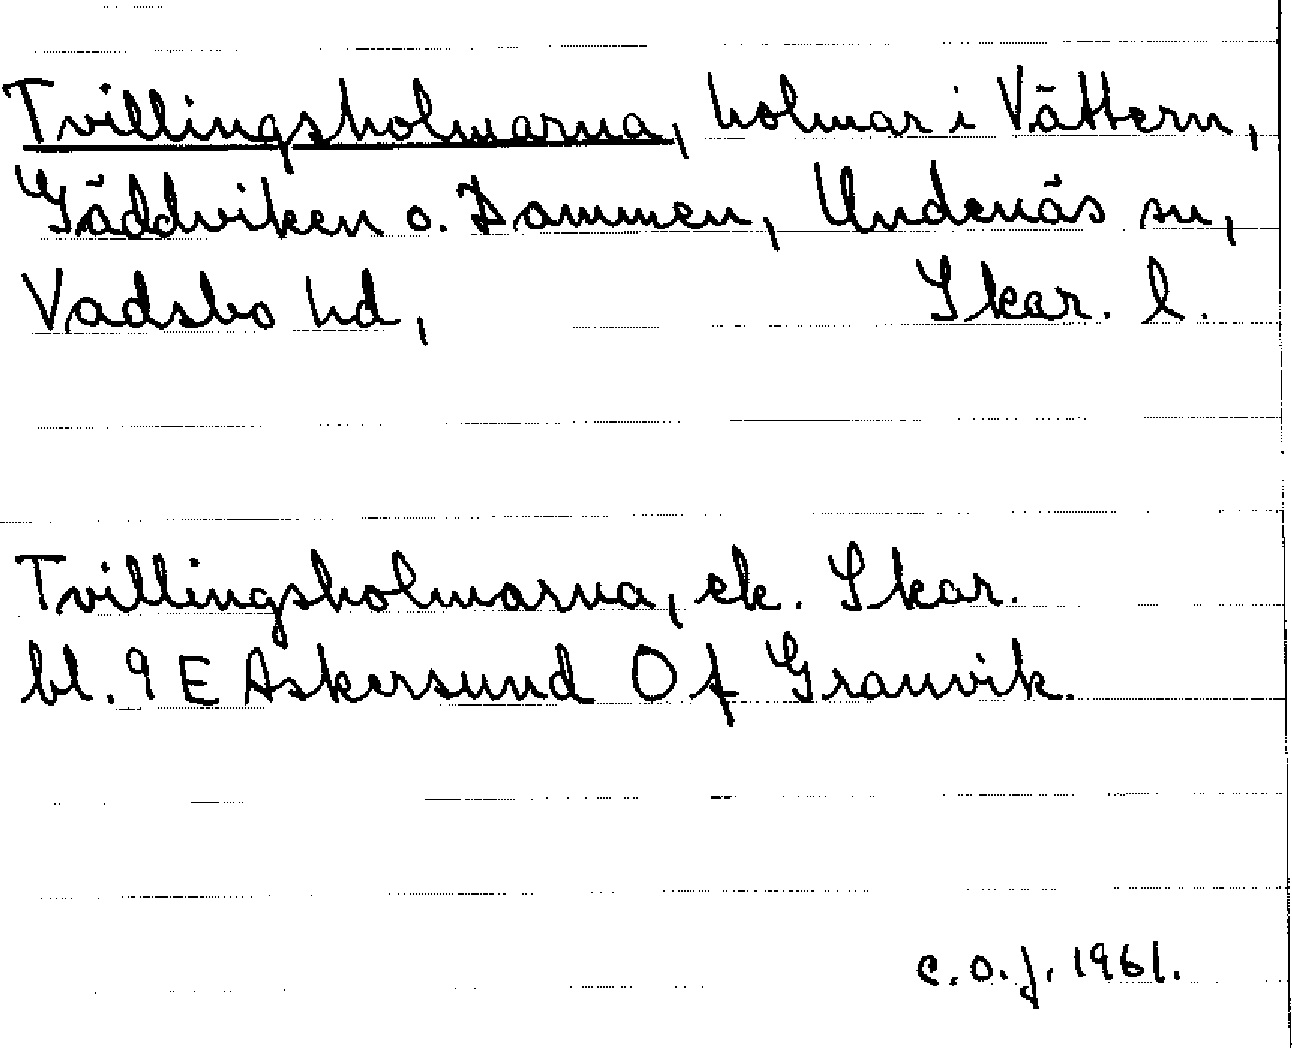 Tvillingsholmarna, holmar i Vättern,
Gäddviken o. Dammen, Undenäs sn,
Vadsbo hd, Skar. l.
Tvillingsholmarna, ek. Skar.
bl. 9 E Askersund O f Granvik.
C.O.J. 1961.